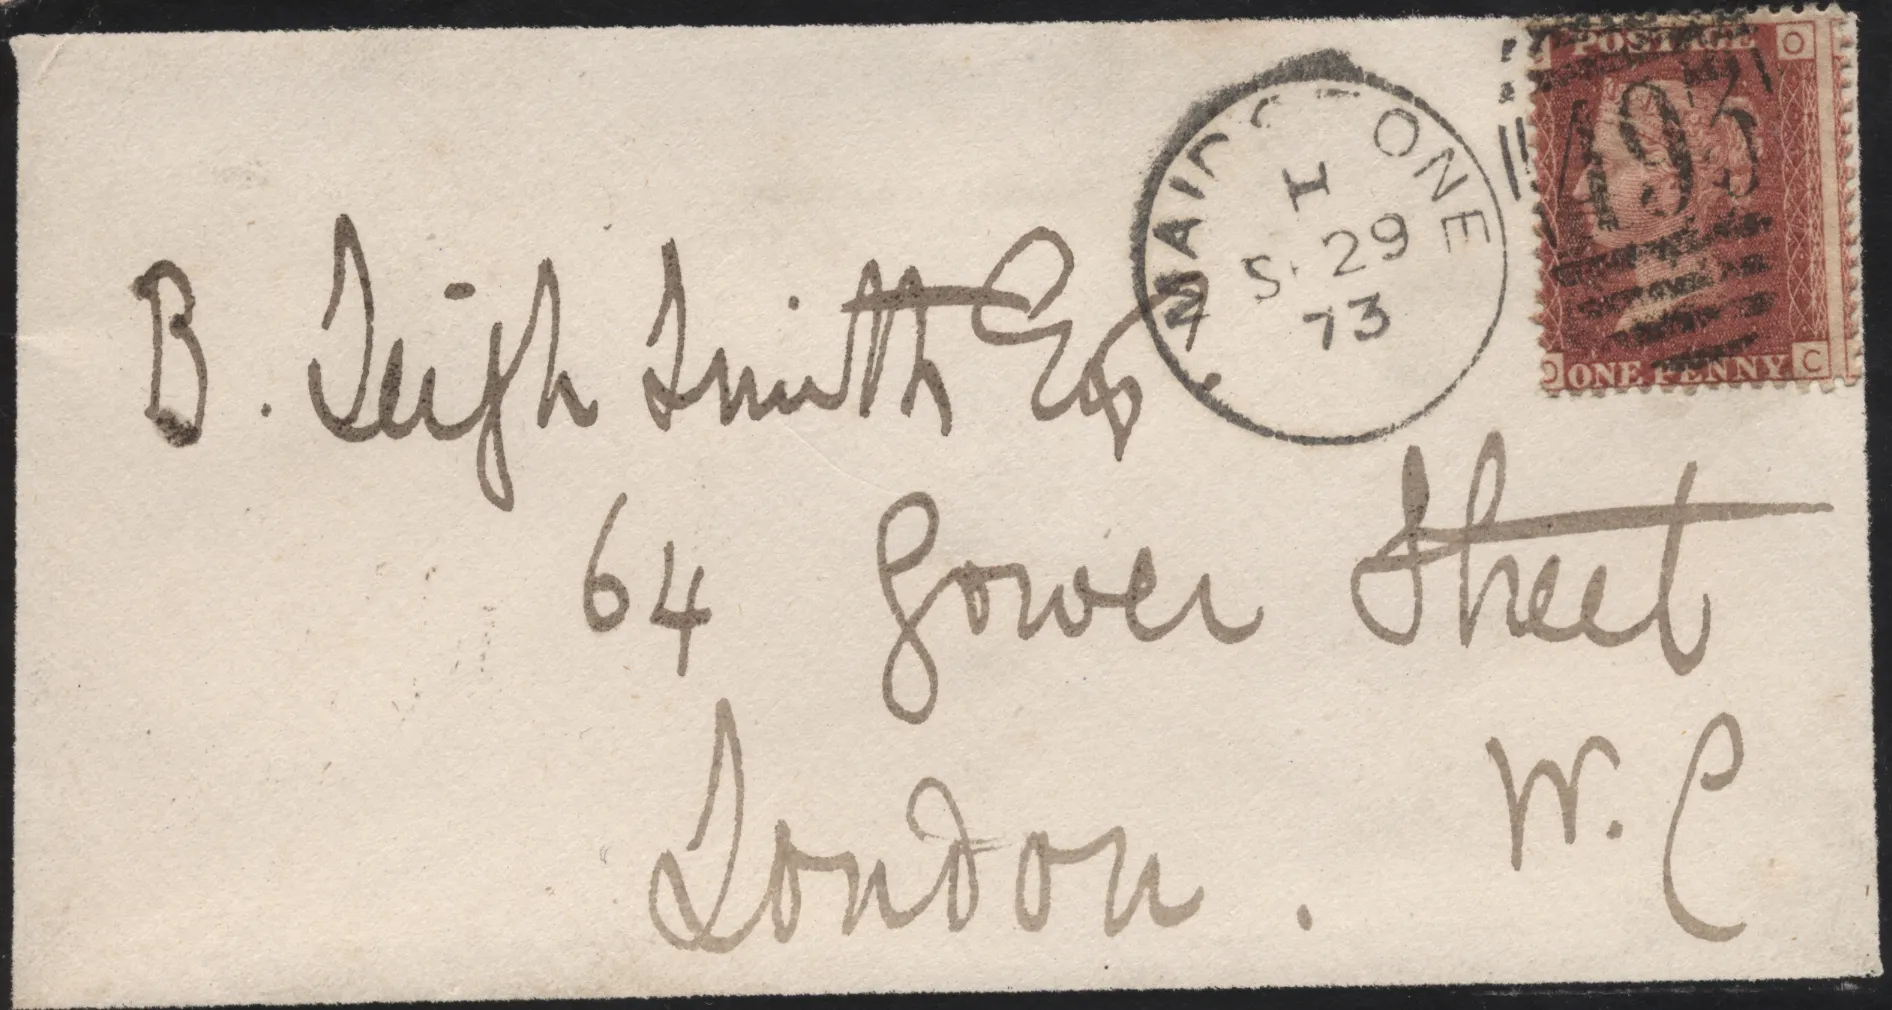 POSTAGE
O
493
MAIDSTONE
I
S. 29
73
B. Leigh Smith Esq
64 Gower Street
London. W.C
ONE PENNY
C